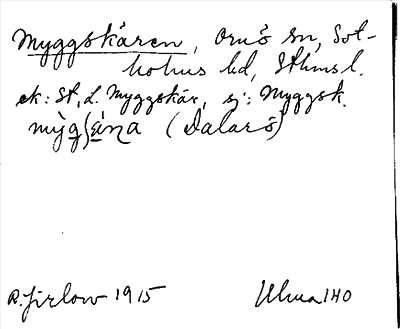 Myggskären, Ornö sn, Sot-
holms hd, Sthms l.
ek: St, L. Myggskär, sj: Myggsk.
(Dalarö)
R. Jirlow 1915 Ulma 140